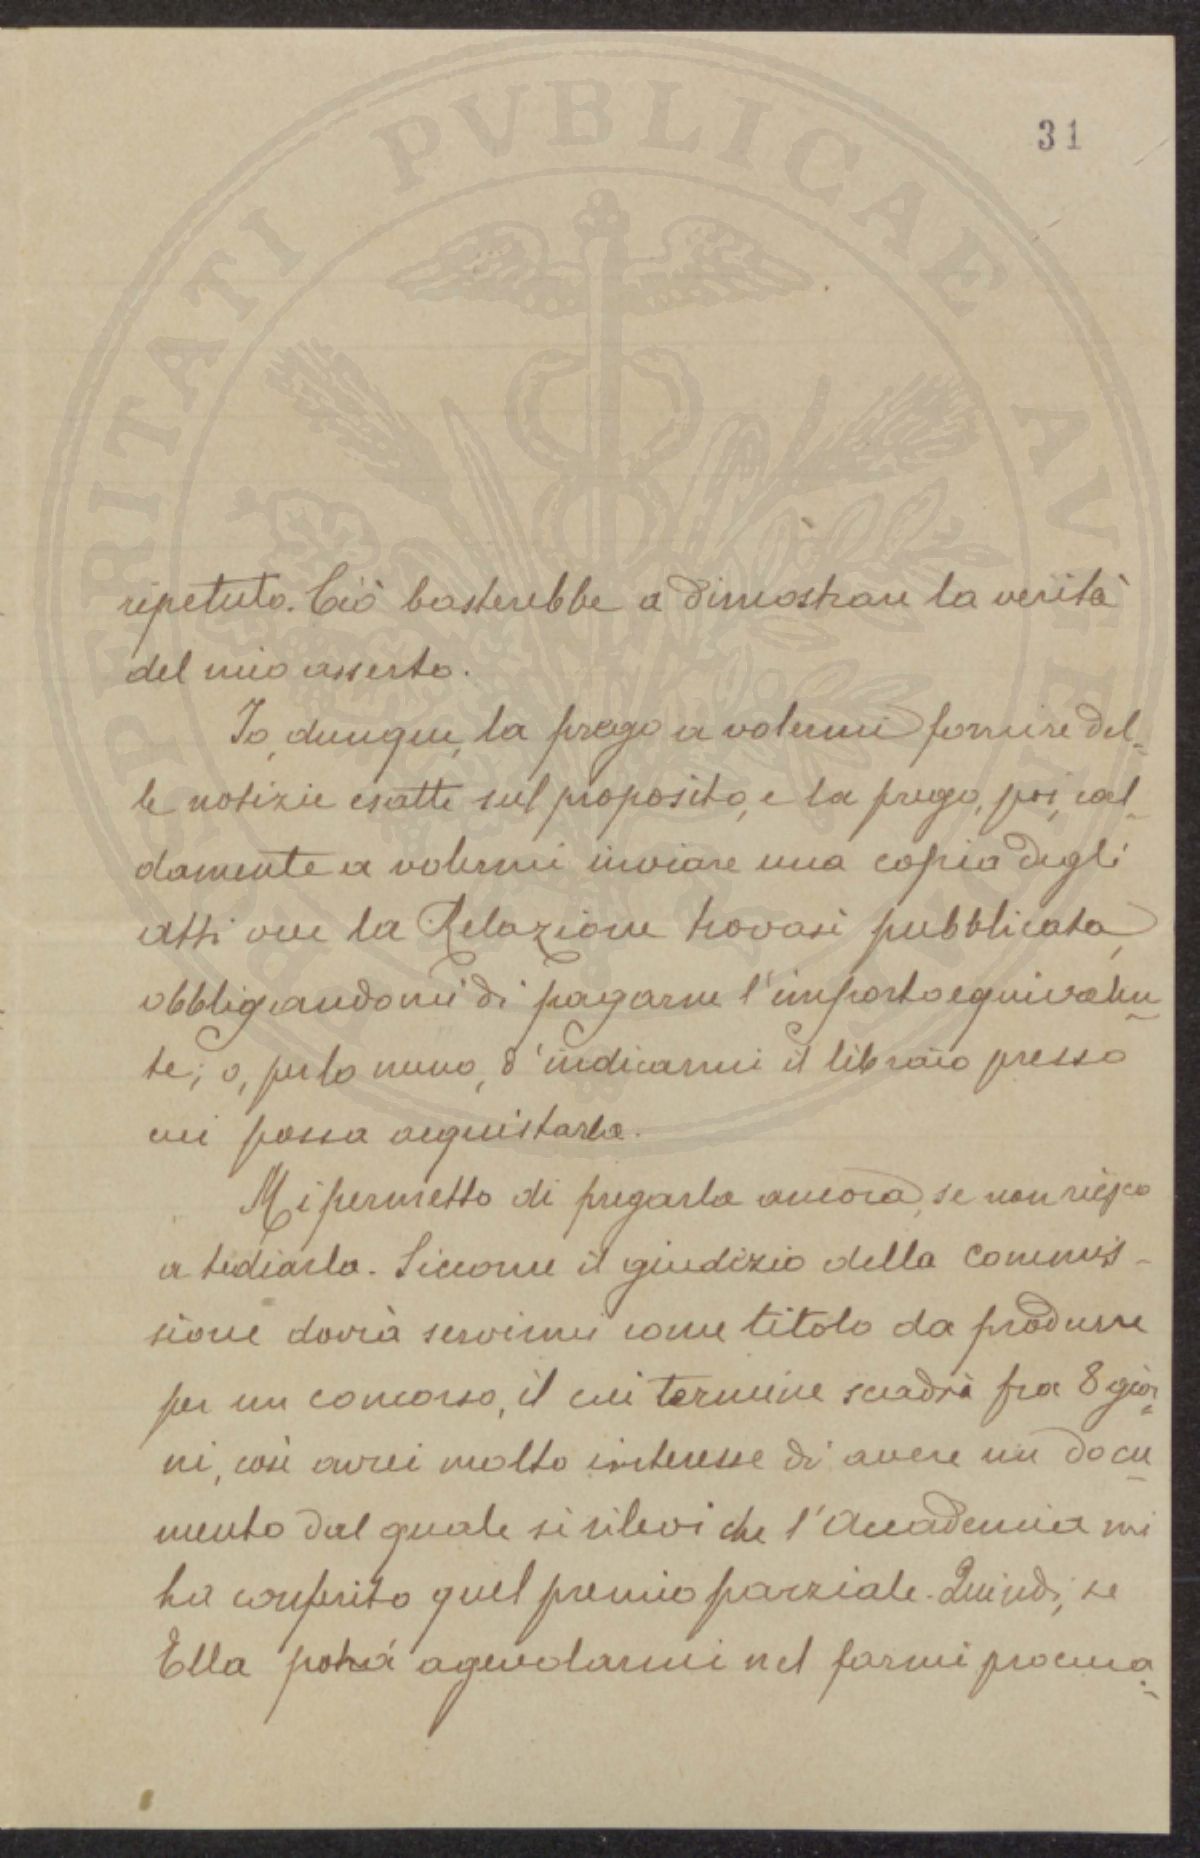 PROSPERITATI PVBLICAE AVGENDAE
31
ripetuto. Ciò basterebbe a dimostrare la verità
del mio asserto.
Io, dunque, la prego a volermi fornire del-
le notizie esatte sul proposito, e la prego, poi, cal-
damente a volermi inviare una copia degli
atti ove la Relazione trovasi pubblicata,
obbligandomi di pagarne l'importo equivalen-
te; o, per lo meno, d'indicarmi il libraio presso
cui possa acquistarla.
Mi permetto di pregarla ancora, se non riesco
a tediarla. Siccome il giudizio della commis-
sione dovrà servirmi come titolo da produrre
per un concorso, il cui termine scadrà fra 8 gior-
ni, così avrei molto interesse di avere un docu-
mento dal quale si rilevi che l'Accademia mi
ha conferito quel premio parziale. Quindi, se
Ella potrà agevolarmi nel farmi procura-